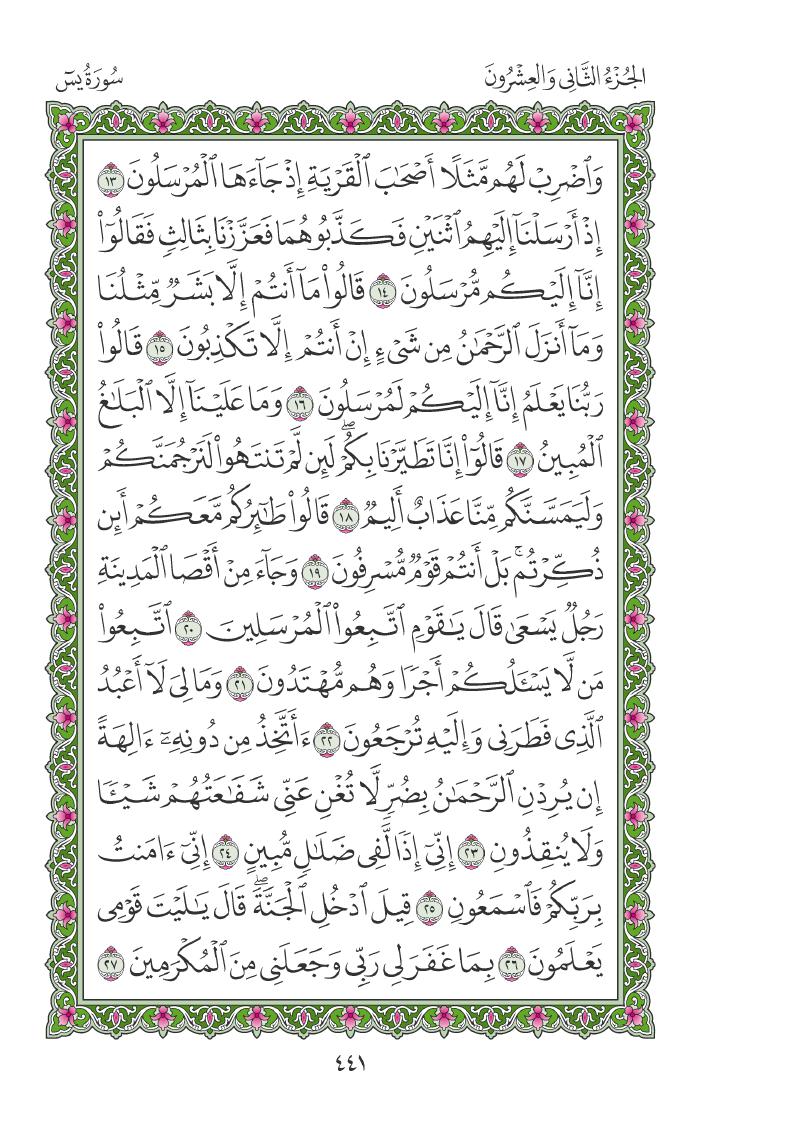 الجُزْءُ الثَّانِي وَالعِشْرُونَ
سُورَةُ يسٓ
وَٱضْرِبْ لَهُم مَّثَلًا أَصْحَٰبَ ٱلْقَرْيَةِ إِذْ جَآءَهَا ٱلْمُرْسَلُونَ ١٣
إِذْ أَرْسَلْنَآ إِلَيْهِمُ ٱثْنَيْنِ فَكَذَّبُوهُمَا فَعَزَّزْنَا بِثَالِثٍ فَقَالُوٓا۟
إِنَّآ إِلَيْكُم مُّرْسَلُونَ ١٤ قَالُوا۟ مَآ أَنتُمْ إِلَّا بَشَرٌ مِّثْلُنَا
وَمَآ أَنزَلَ ٱلرَّحْمَٰنُ مِن شَىْءٍ إِنْ أَنتُمْ إِلَّا تَكْذِبُونَ ١٥ قَالُوا۟
رَبُّنَا يَعْلَمُ إِنَّآ إِلَيْكُمْ لَمُرْسَلُونَ ١٦ وَمَا عَلَيْنَآ إِلَّا ٱلْبَلَٰغُ
ٱلْمُبِينُ ١٧ قَالُوٓا۟ إِنَّا تَطَيَّرْنَا بِكُمْ ۖ لَئِن لَّمْ تَنتَهُوا۟ لَنَرْجُمَنَّكُمْ
وَلَيَمَسَّنَّكُم مِّنَّا عَذَابٌ أَلِيمٌ ١٨ قَالُوا۟ طَٰٓئِرُكُم مَّعَكُمْ أَئِن
ذُكِّرْتُم ۚ بَلْ أَنتُمْ قَوْمٌ مُّسْرِفُونَ ١٩ وَجَآءَ مِنْ أَقْصَا ٱلْمَدِينَةِ
رَجُلٌ يَسْعَىٰ قَالَ يَٰقَوْمِ ٱتَّبِعُوا۟ ٱلْمُرْسَلِينَ ٢٠ ٱتَّبِعُوا۟
مَن لَّا يَسْـَٔلُكُمْ أَجْرًا وَهُم مُّهْتَدُونَ ٢١ وَمَا لِىَ لَآ أَعْبُدُ
ٱلَّذِى فَطَرَنِى وَإِلَيْهِ تُرْجَعُونَ ٢٢ ءَأَتَّخِذُ مِن دُونِهِۦٓ ءَالِهَةً
إِن يُرِدْنِ ٱلرَّحْمَٰنُ بِضُرٍّ لَّا تُغْنِ عَنِّى شَفَٰعَتُهُمْ شَيْـًٔا
وَلَا يُنقِذُونِ ٢٣ إِنِّىٓ إِذًا لَّفِى ضَلَٰلٍ مُّبِينٍ ٢٤ إِنِّىٓ ءَامَنتُ
بِرَبِّكُمْ فَٱسْمَعُونِ ٢٥ قِيلَ ٱدْخُلِ ٱلْجَنَّةَ ۖ قَالَ يَٰلَيْتَ قَوْمِى
يَعْلَمُونَ ٢٦ بِمَا غَفَرَ لِى رَبِّى وَجَعَلَنِى مِنَ ٱلْمُكْرَمِينَ ٢٧
٤٤١